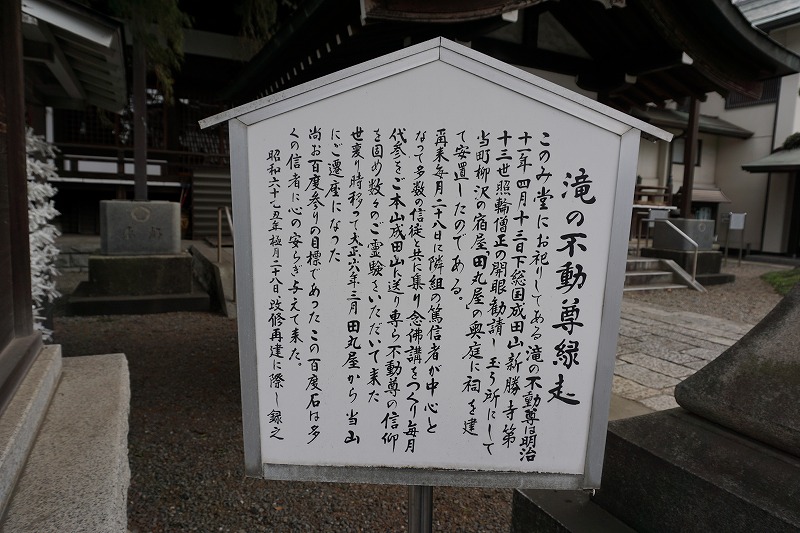 滝の不動尊縁起
このみ堂にお祀りしてある滝の不動尊は明治
十一年四月十三日下総国成田山新勝寺第
十三世照輪僧正の開眼勧請し玉う所にして
当町柳沢の宿屋田丸屋の奥庭に祠を建
て安置したのである。
再来毎月二十八日に隣組の篤信者が中心と
なって多数の信徒と共に集り念佛講をつくり毎月
代参をご本山成田山に送り専ら不動尊の信仰
を固め数々のご霊験をいただいて来た
世変り時移って大正六年三月田丸屋から当山
にご遷座になった
尚お百度参りの目標であったこの百度石は多
くの信者に心の安らぎ与えて来た。
昭和六十乙丑年極月二十八日改修再建に際し録之